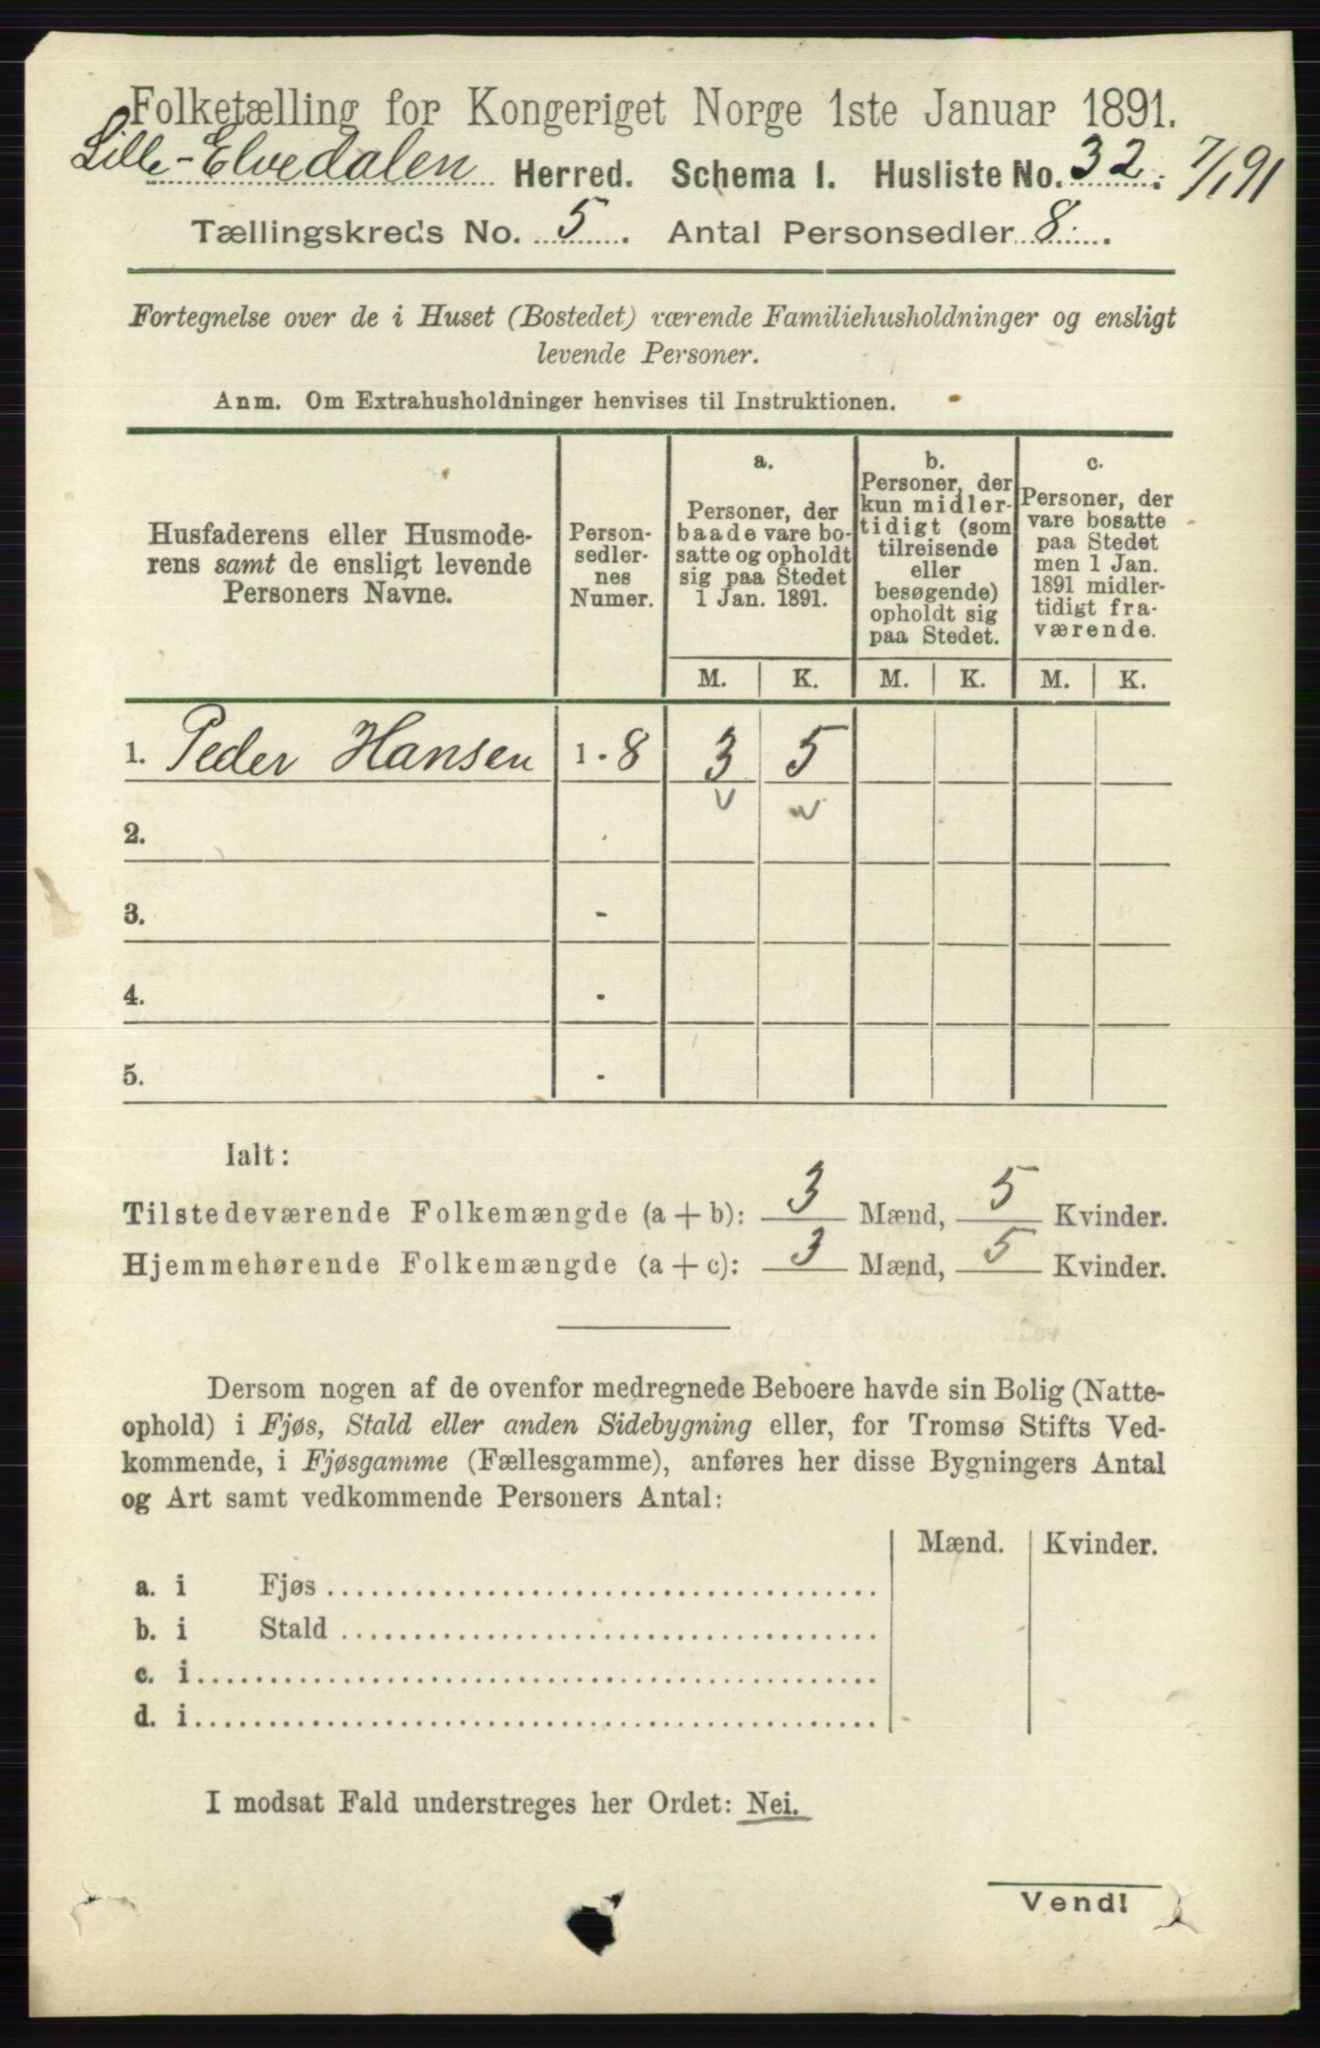 Folketælling for Kongeriget Norge 1ste Januar 1891.
Lille-Elvedalen Herred. Schema I. Husliste No. 32. 7/1 91
Tællingskreds No. 5. Antal Personsedler 8.
Fortegnelse over de i Huset (Bostedet) værende Familiehusholdninger og ensligt
levende Personer.
Anm. Om Extrahusholdninger henvises til Instruktionen.
Husfaderens eller Husmode-
rens samt de ensligt levende
Personers Navne.
Person-
sedler-
nes
Numer.
a.
Personer, der
baade vare bo-
satte og opholdt
sig paa Stedet
1 Jan. 1891.
b.
Personer, der
kun midler-
tidigt (som
tilreisende
eller
besøgende)
opholdt sig
paa Stedet.
c.
Personer, der
vare bosatte
paa Stedet
men 1 Jan.
1891 midler-
tidigt fra-
værende.
M. K. M. K. M. K.
1. Peder Hansen 1 - 8 3 5
2. -
3. -
4. -
5. -
Ialt:
Tilstedeværende Folkemængde (a + b): 3 Mænd, 5 Kvinder.
Hjemmehørende Folkemængde (a + c): 3 Mænd, 5 Kvinder.
Dersom nogen af de ovenfor medregnede Beboere havde sin Bolig (Natte-
ophold) i Fjøs, Stald eller anden Sidebygning eller, for Tromsø Stifts Ved-
kommende, i Fjøsgamme (Fællesgamme), anføres her disse Bygningers Antal
og Art samt vedkommende Personers Antal:
Mænd. Kvinder.
a. i Fjøs
b. i Stald
c. i
d. i
I modsat Fald understreges her Ordet: Nei.
Vend!